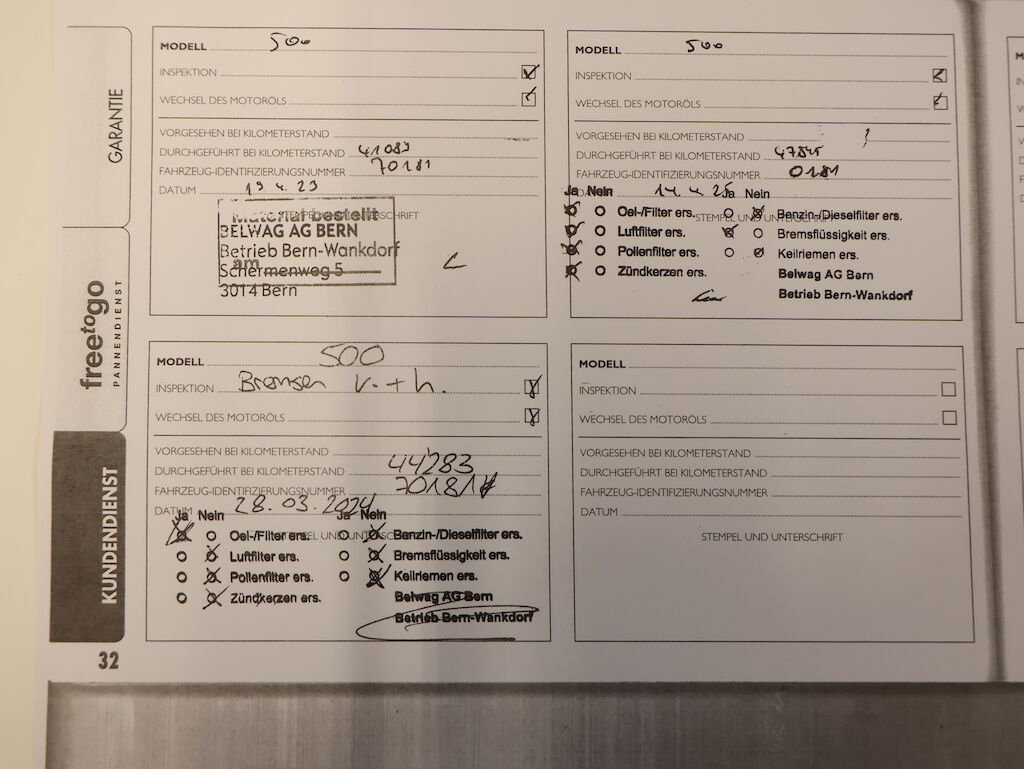 GARANTIE
free to go
PANNENDIENST
KUNDENDIENST
32
MODELL 500
INSPEKTION
WECHSEL DES MOTORÖLS
VORGESEHEN BEI KILOMETERSTAND
DURCHGEFÜHRT BEI KILOMETERSTAND 41089
FAHRZEUG-IDENTIFIZIERUNGSNUMMER 70181
DATUM 19 4. 23
STEMPEL UND UNTERSCHRIFT
Material bestellt
BELWAG AG BERN
Betrieb Bern-Wankdorf
am
Schermenweg 5
3014 Bern
MODELL 500
INSPEKTION
WECHSEL DES MOTORÖLS
VORGESEHEN BEI KILOMETERSTAND
DURCHGEFÜHRT BEI KILOMETERSTAND
FAHRZEUG-IDENTIFIZIERUNGSNUMMER 0181
DATUM 14. 4. 25
Ja Nein Ja Nein
STEMPEL UND UNTERSCHRIFT
Oel-/Filter ers. Benzin-/Dieselfilter ers.
Luftfilter ers. Bremsflüssigkeit ers.
Pollenfilter ers. Keilriemen ers.
Zündkerzen ers. Belwag AG Bern
Betrieb Bern-Wankdorf
MODELL 500
INSPEKTION Bremsen v. + h.
WECHSEL DES MOTORÖLS
VORGESEHEN BEI KILOMETERSTAND
DURCHGEFÜHRT BEI KILOMETERSTAND 44283
FAHRZEUG-IDENTIFIZIERUNGSNUMMER 70181
DATUM 28.03.2024
Ja Nein Ja Nein
STEMPEL UND UNTERSCHRIFT
Oel-/Filter ers. Benzin-/Dieselfilter ers.
Luftfilter ers. Bremsflüssigkeit ers.
Pollenfilter ers. Keilriemen ers.
Zündkerzen ers. Belwag AG Bern
Betrieb Bern-Wankdorf
MODELL
INSPEKTION
WECHSEL DES MOTORÖLS
VORGESEHEN BEI KILOMETERSTAND
DURCHGEFÜHRT BEI KILOMETERSTAND
FAHRZEUG-IDENTIFIZIERUNGSNUMMER
DATUM
STEMPEL UND UNTERSCHRIFT